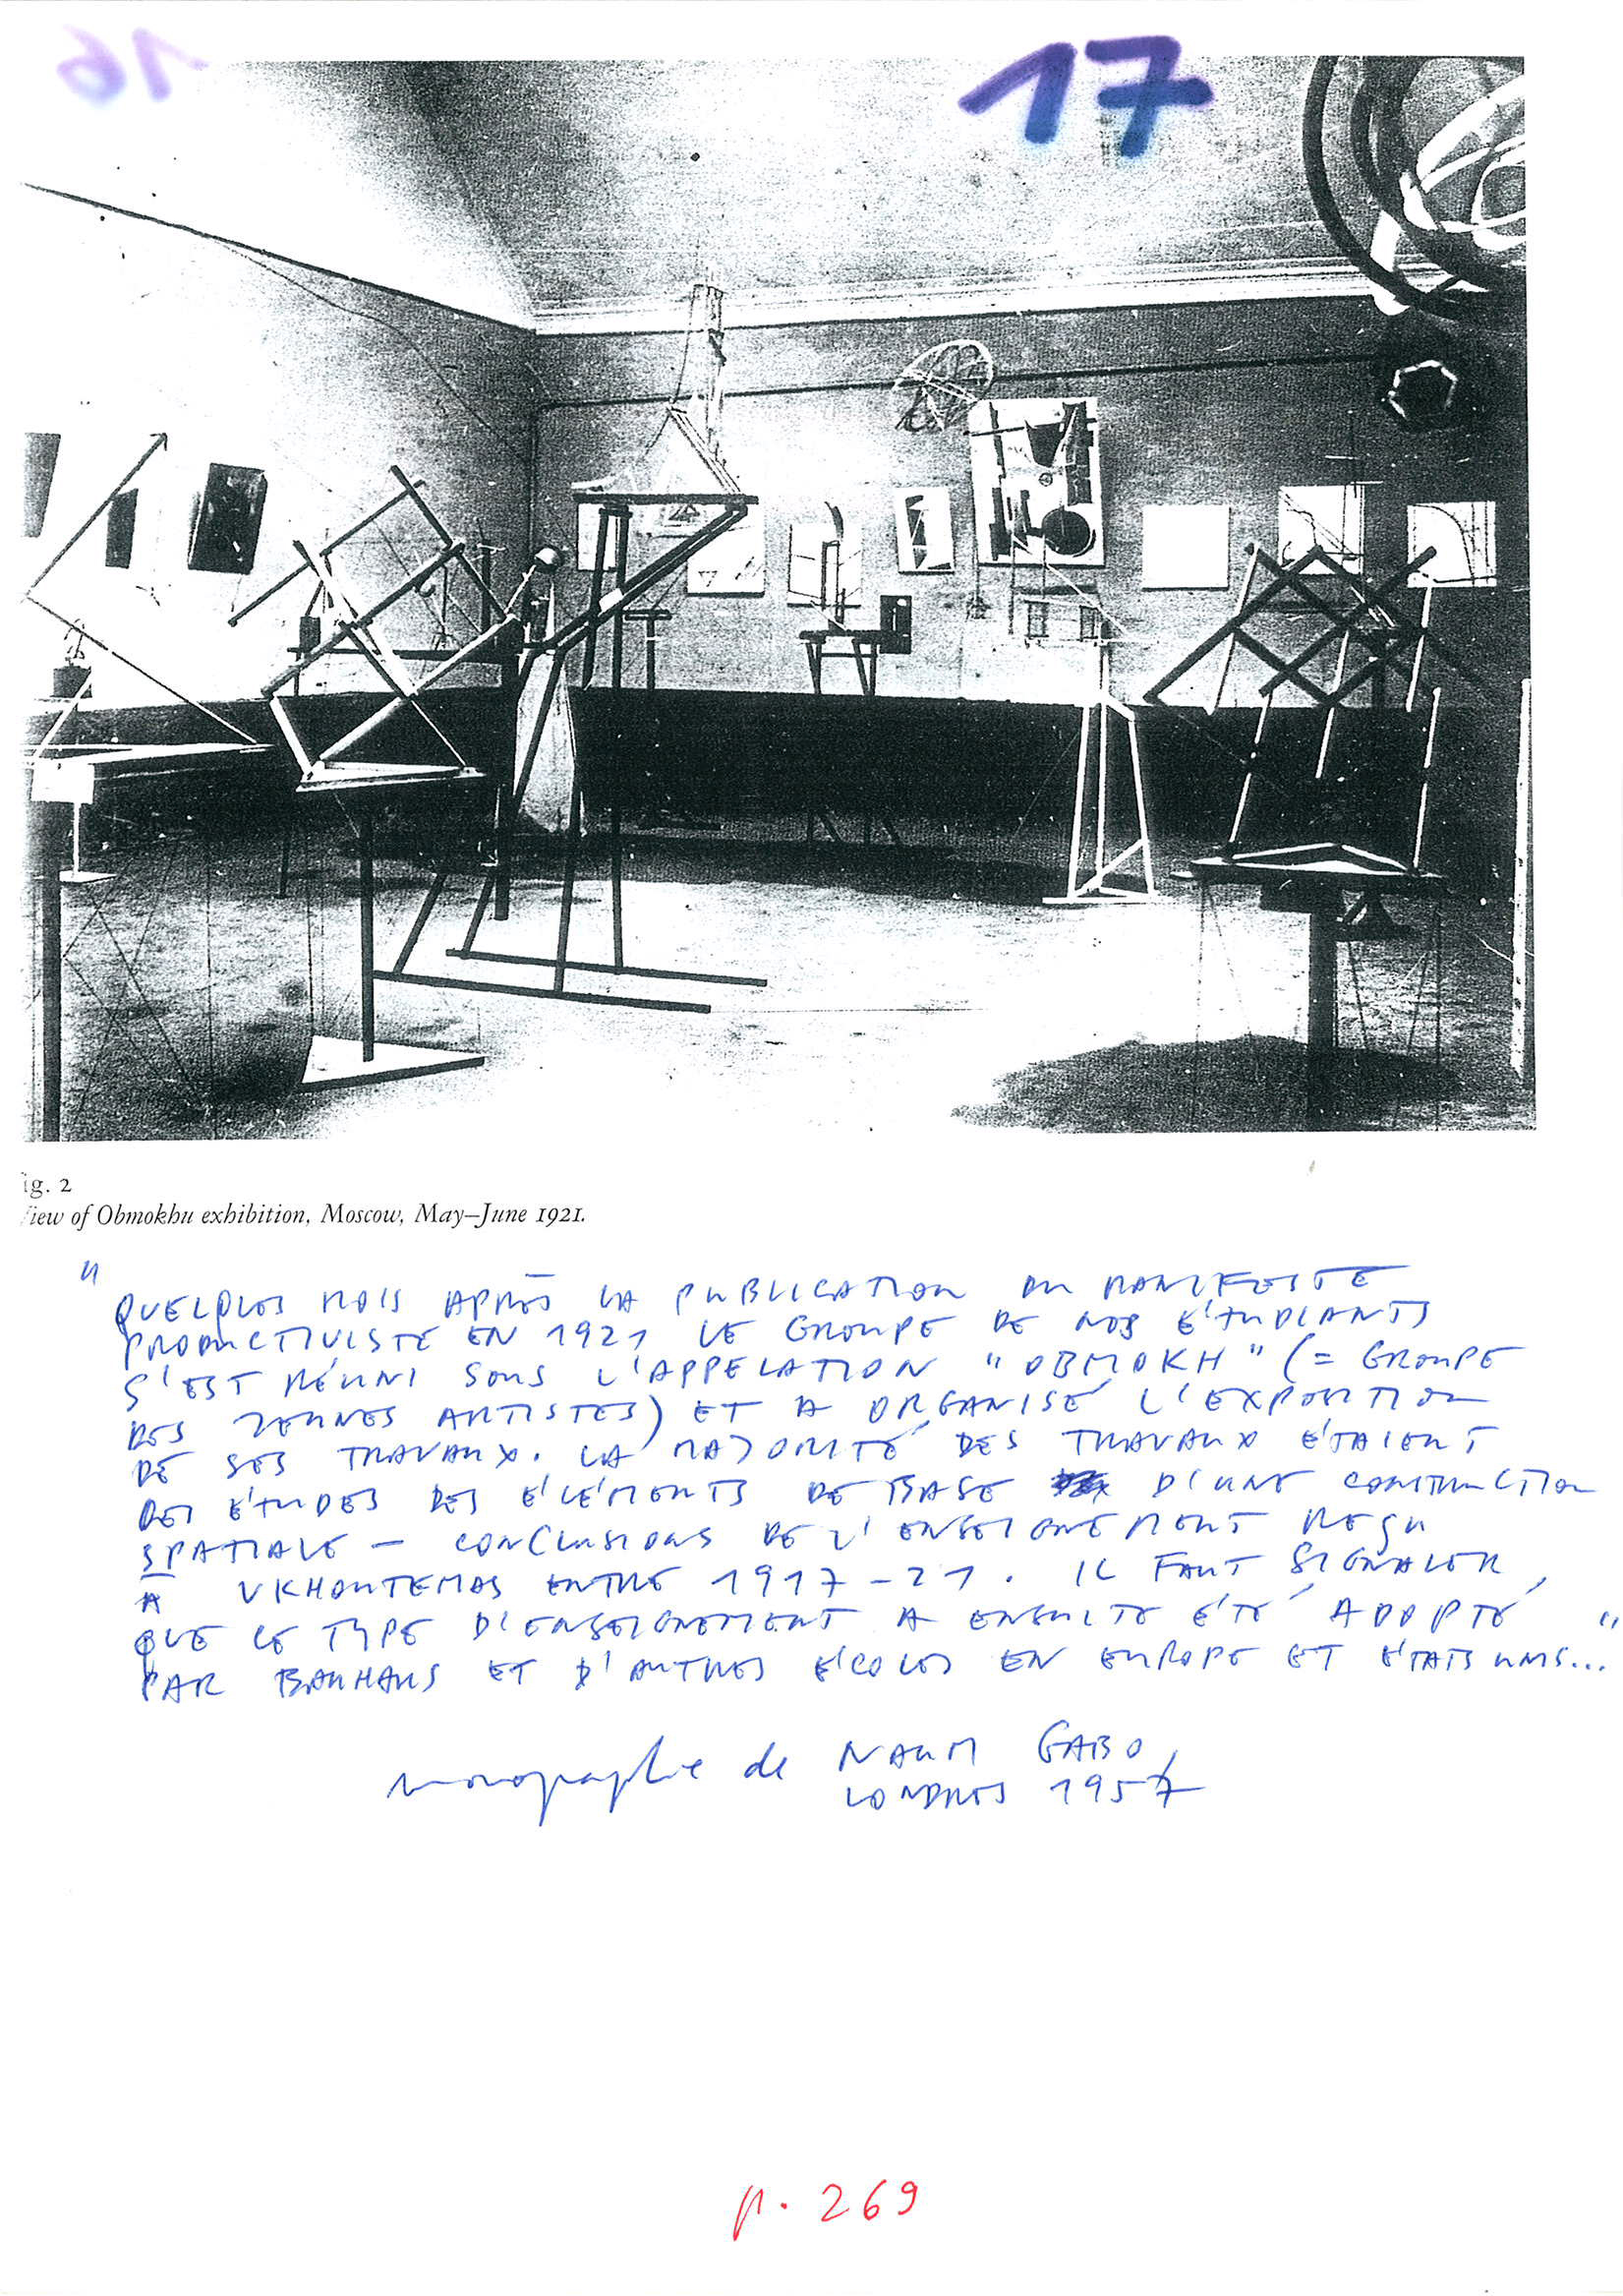 16
17
ig. 2
View of Obmokhu exhibition, Moscow, May–June 1921.
"QUELQUES MOIS APRÈS LA PUBLICATION DU MANIFESTE
PRODUCTIVISTE EN 1921 LE GROUPE DE NOS ÉTUDIANTS
S'EST RÉUNI SOUS L'APPELATION "OBMOKH" (= GROUPE
DES JEUNES ARTISTES) ET A ORGANISÉ L'EXPOSITION
DE SES TRAVAUX. LA MAJORITÉ DES TRAVAUX ÉTAIENT
DES ÉTUDES DES ÉLÉMENTS DE BASE D'UNE CONSTRUCTION
SPATIALE – CONCLUSIONS DE L'ENSEIGNEMENT REÇU
A VKHOUTEMAS ENTRE 1917–21. IL FAUT SIGNALER
QUE CE TYPE D'ENSEIGNEMENT A ENSUITE ÉTÉ ADOPTÉ
PAR BAUHAUS ET D'AUTRES ÉCOLES EN EUROPE ET ÉTATS UNIS..."
monographie de NAUM GABO,
LONDRES 1957
p. 269